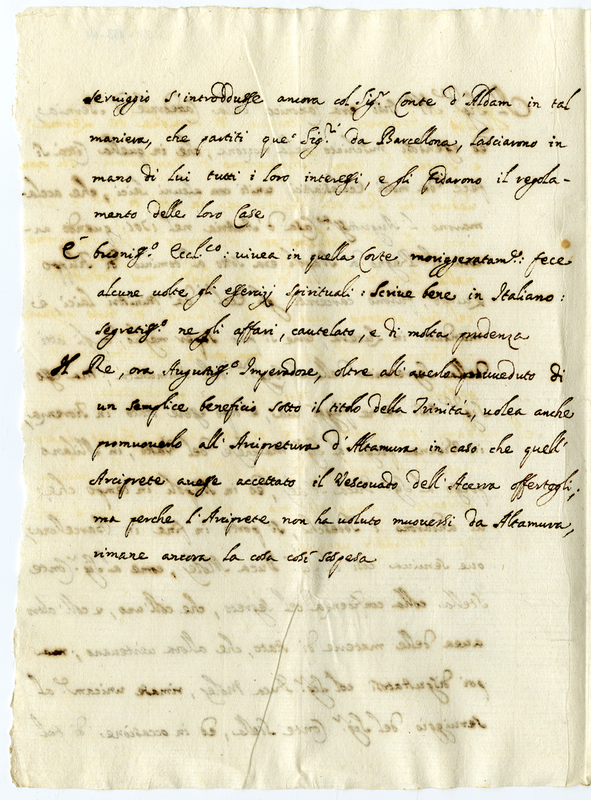 seruiggio s'introdusse ancora col Sig.r Conte d'Aldam in tal
maniera, che partiti que' Sig.ri da Barcellona, lasciarono in
mano di lui tutti i loro interessi, e gli fidarono il regola-
mento delle loro Case
È buoniss.o Eccl.co: viuea in quella Corte morigeratam.te: fece
alcune uolte gli esercizj spirituali: Scriue bene in Italiano:
segretiss.o ne gli affari, cautelato, e di molta prudenza
Il Re, ora Augustiss.o Imperadore, oltre all'auerlo proueduto di
un semplice beneficio sotto il titolo della Trinità, uolea anche
promuouerlo all'Arcipretura d'Altamura in caso che quell'
Arciprete auesse accettato il Vescouado dell'Acerra offertogli;
ma perche l'Arciprete non ha uoluto muouersi da Altamura,
rimane ancora la cosa così sospesa